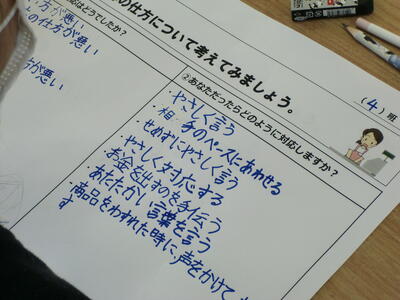 の仕方について考えてみましょう。
(4)班
応はどうでしたか？
い方が悪い
の仕方が悪い
方が悪い
②あなただったらどのように対応しますか？
・やさしく言う
・相手のペースにあわせる
・せめずにやさしく言う
・やさしく対応する
・お金を出すのを手伝う
・あたたかい言葉を言う
・商品をわすれた時に、声をかけて
す